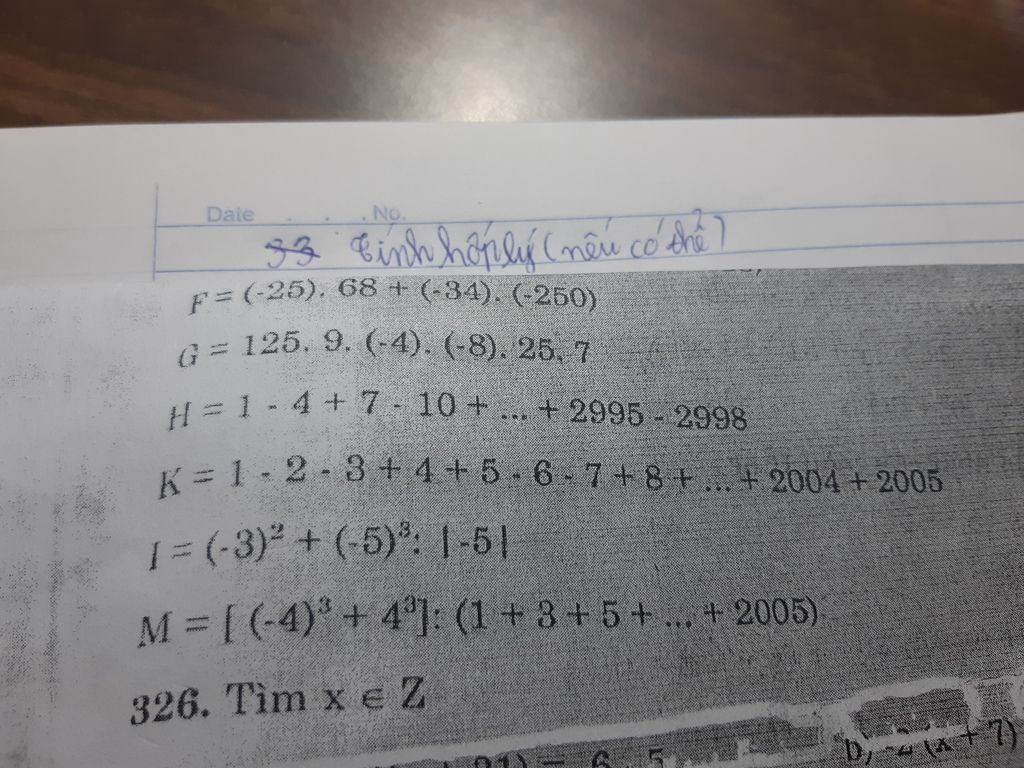 Date . . . No.
33 tính hợp lý (nếu có thể)
F = (-25). 68 + (-34). (-250)
G = 125. 9. (-4). (-8). 25. 7
H = 1 - 4 + 7 - 10 + ... + 2995 - 2998
K = 1 - 2 - 3 + 4 + 5 - 6 - 7 + 8 + ... + 2004 + 2005
I = (-3)² + (-5)³: |-5|
M = [ (-4)³ + 4³]: (1 + 3 + 5 + ... + 2005)
326. Tìm x ∈ Z
b) -2 (x + 7)
= 6 . 5